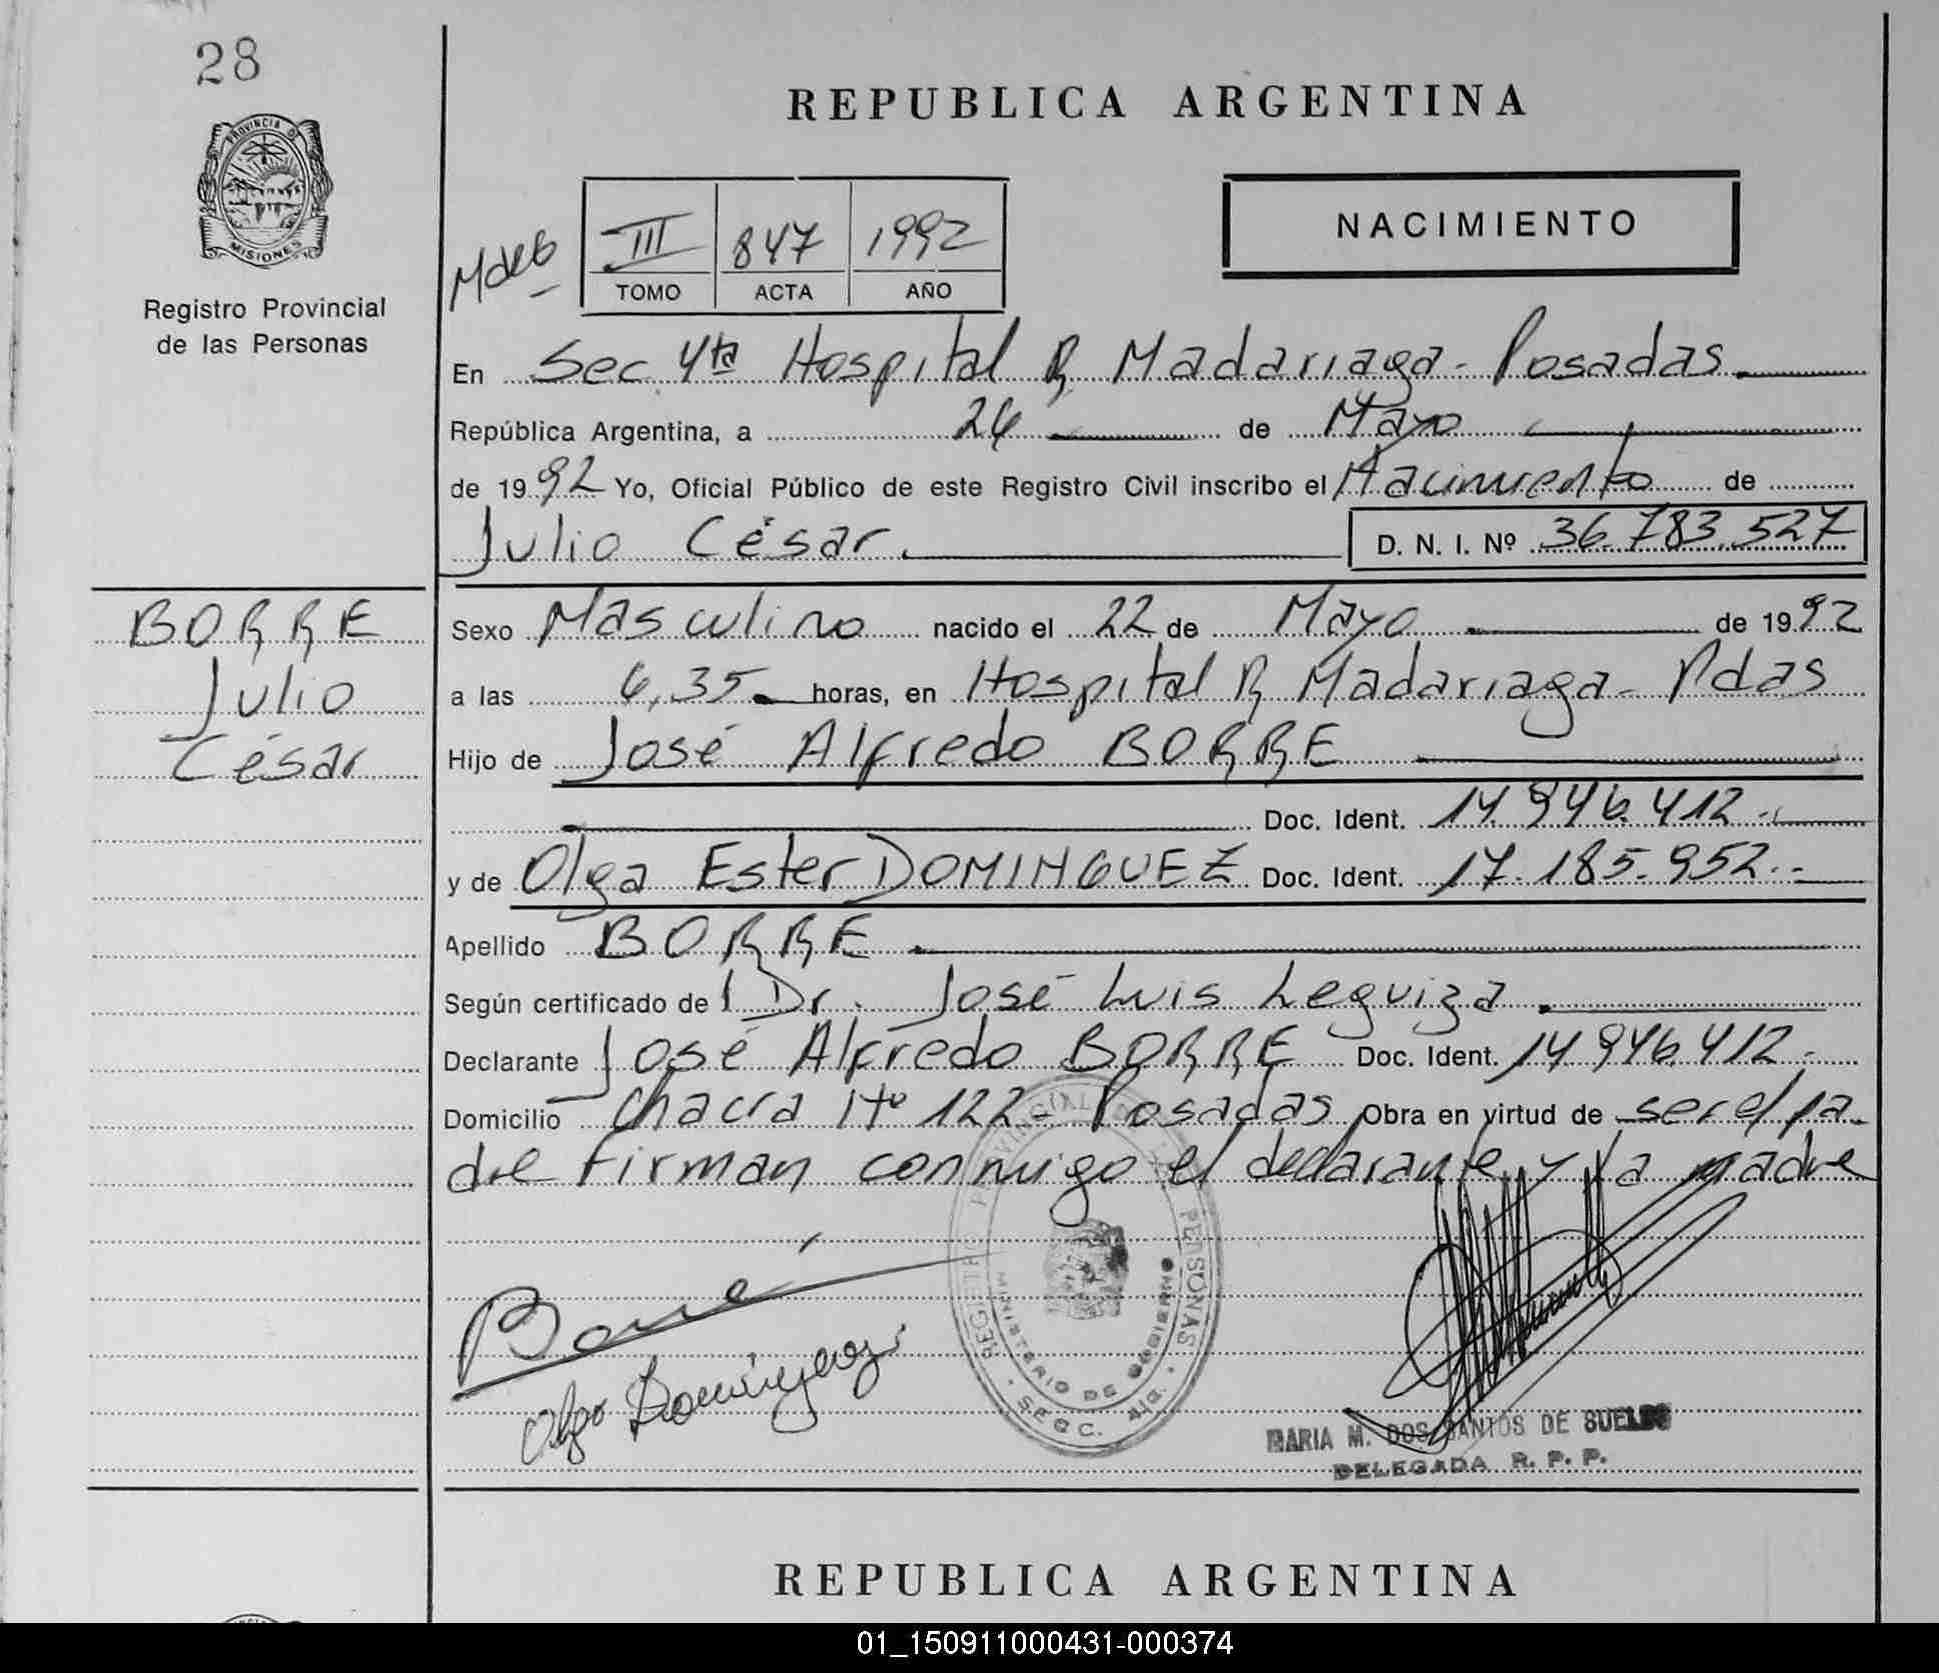 28
REPUBLICA ARGENTINA
PROVINCIA DE
MISIONES
Registro Provincial
de las Personas
NACIMIENTO
III 847 1992
TOMO ACTA AÑO
En Sec 4ta Hospital R. Madariaga - Posadas.
República Argentina, a 26 de Mayo
de 1992 Yo, Oficial Público de este Registro Civil inscribo el Nacimiento de
Julio César. D. N. I. Nº 36.783.527
BORRE
Julio
César
Sexo Masculino nacido el 22 de Mayo de 1992
a las 6,35 horas, en Hospital R Madariaga - Pdas
Hijo de José Alfredo BORRE
Doc. Ident. 14.946.412.-
y de Olga Ester DOMINGUEZ Doc. Ident. 17.185.952.-
Apellido BORRE
Según certificado de Dr. José Luis Leguiza.
Declarante José Alfredo BORRE Doc. Ident. 14.946.412.-
Domicilio Chacra Nº 122 - Posadas Obra en virtud de ser el pa-
dre Firman conmigo el declarante y la madre
REGISTRO PROVINCIAL DE LAS PERSONAS
MINISTERIO DE GOBIERNO
SECC. 4ta.
Borré
Olga Dominguez
MARIA M. DOS SANTOS DE SUELDO
DELEGADA R. P. P.
REPUBLICA ARGENTINA
01_150911000431-000374